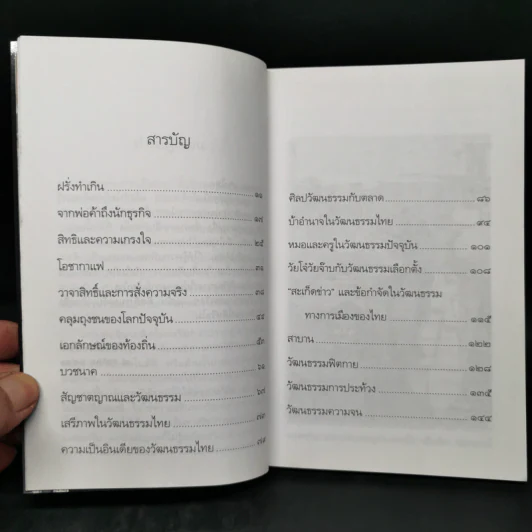 สารบัญ
ฝรั่งทำเกิน ๑๑
จากพ่อค้าถึงนักธุรกิจ ๑๙
สิทธิและความเกรงใจ ๒๕
โอชากาแฟ ๓๑
วาจาสิทธิ์และการสั่งความจริง ๓๘
คลุมถุงชนของโลกปัจจุบัน ๔๔
เอกลักษณ์ของท้องถิ่น ๕๓
บวชนาค ๖๑
สัญชาตญาณและวัฒนธรรม ๖๗
เสรีภาพในวัฒนธรรมไทย ๗๓
ความเป็นอินเดียของวัฒนธรรมไทย ๗๘
ศิลปวัฒนธรรมกับตลาด ๘๖
บ้าอำนาจในวัฒนธรรมไทย ๙๔
หมอและครูในวัฒนธรรมปัจจุบัน ๑๐๑
วัยโจ๋วัยจ๊าบกับวัฒนธรรมเลือกตั้ง ๑๐๘
"สะเก็ดข่าว" และข้อกำจัดในวัฒนธรรม
ทางการเมืองของไทย ๑๑๕
สาบาน ๑๒๒
วัฒนธรรมฟิตกาย ๑๒๘
วัฒนธรรมการประท้วง ๑๓๕
วัฒนธรรมความจน ๑๔๔